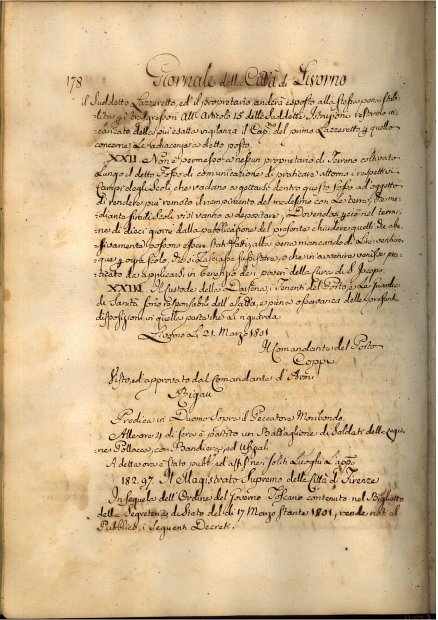 178 Giornale della Città di Livorno
il Suddetto Lazzeretto, ed il proprietario anderà esposto alla stessa pena stabi-
lita p i trasgressori All' Articolo 15 delle Suddette Istruzioni restando in-
caricato della più esatta vigilanza il Cap.no del primo Lazzeretto p quello
concerne le adiacenze a detto posto.
XXII. Non è permesso a nessun proprietario di Terreno coltivato
Lungo il detto Fosso di comunicazione di praticare attorno i respettivi
Campi degli Scoli, che vadano a gettarsi dentro questo fosso ad oggetto
di rendere più remoto il riempimento del medesimo con la terra, che me-
diante simili Scoli vi si vanno a depositare, Dovendosi p ciò nel termi-
ne di dieci giorni dalla pubblicazione del presente chiudere quelli che abu-
sivamente possono essere Stati fatti, alla pena mancando di Lire venticin-
que p ogni Scolo, che si Lasciasse sussistere, o che in avvenire venisse pra-
ticato da applicarsi in benefizio dei poveri della Cura di S. Jacopo.
XXIII. Il Custode della Darsena, i Tenenti del Porto, e Le Guardie
di Sanità Sono responsabili dell' esatta, e piena osservanza delle presenti
disposizioni in quella parte che Li riguarda
Livorno Li 21. Marzo 1801
Il Comandante del Porto
Coppi
Visto, ed approvato dal Comandante d'Armi
Rigau
Predica in Duomo Sopra il Peccatore Moribondo
Alle ore 4 di sera è partito un Battaglione di Soldati della Legio-
ne Pollacca, con Bandiera, ed
A detta ora è Stato pubb. ed aff. nei soliti Luoghi
182. 97. Il Magistrato Supremo della Città di Firenze
In sequela dell' Ordine del Governo Toscano contenuto nel Biglietto
della Segreteria di Stato del dì 17 Marzo Stante 1801, rende noti al
Pubblico, i Seguenti Decreti.